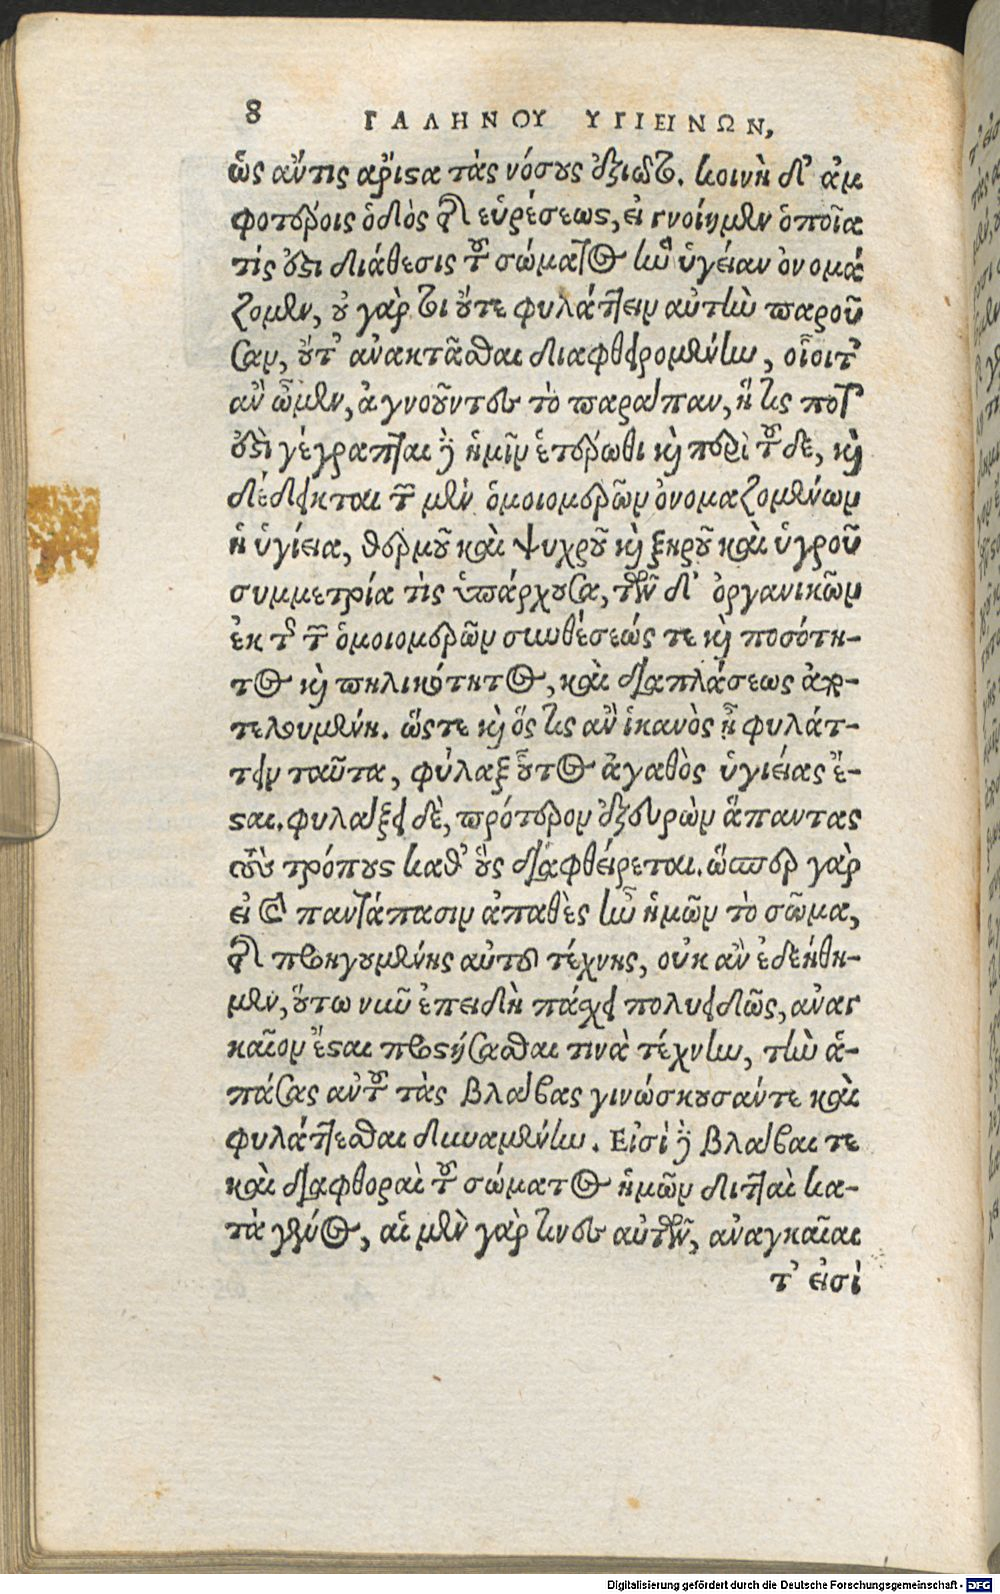 8 ΓΑΛΗΝΟΥ ΥΓΙΕΙΝΩΝ,
ὥς αὔτις ἄριστα τὰς νόσους ἐξιῶτο. κοινὴ δ' ἀμ
φοτέροις ὁδὸς τῆς εὑρέσεως, εἰ γνοίημεν ὁποῖα
τίς ἐστι διάθεσις τοῦ σώματος ἣν ὑγείαν ὀνομά
ζομεν, οὐ γὰρ ἔτι οὔτε φυλάττειν αὐτὴν παροῦ
σαν, οὔτ' ἀνακτᾶσθαι διαφθειρομένην, οἷοίτ'
ἂν ὦμεν, ἀγνοοῦντες τὸ παράπαν, ἥ τις ποτ'
ἐστὶ γέγραπται δὴ ἡμῖν ἑτέρωθι καὶ περὶ τοῦδε, καὶ
δέδεικται τῶν μὲν ὁμοιομερῶν ὀνομαζομένων
ἡ ὑγίεια, θερμοῦ καὶ ψυχροῦ καὶ ξηροῦ καὶ ὑγροῦ
συμμετρία τὶς ὑπάρχουσα, τῶν δ' ὀργανικῶν
ἐκ τῆς τῶν ὁμοιομερῶν συνθέσεώς τε καὶ ποσότη-
τος καὶ πηλικότητος, καὶ διαπλάσεως ἀπο-
τελουμένη. ὥστε καὶ ὅς τις ἂν ἱκανὸς ᾖ φυλάτ-
τειν ταῦτα, φύλαξ οὗτος ἀγαθὸς ὑγιείας ἔ-
σται. φυλάξει δὲ, πρότερον ἐξευρὼν ἅπαντας
τοὺς τρόπους καθ' οὓς διαφθείρεται. ὥσπερ γὰρ
εἰ καὶ παντάπασιν ἀπαθὲς ἦν ἡμῶν τὸ σῶμα,
τῆς προηγουμένης αὐτοῦ τέχνης, οὐκ ἂν ἐδεήθη-
μεν, οὕτω νῦν ἐπειδὴ πάσχει πολυειδῶς, ἀναγ
καῖον ἔσται προστήσασθαι τινὰ τέχνην, τὴν ἁ-
πάσας αὐτοῦ τὰς βλάβας γινώσκουσάντε καὶ
φυλάττεσθαι δυναμένην. Εἰσὶ δὴ βλάβαι τε
καὶ διαφθοραὶ τοῦ σώματος ἡμῶν διτταὶ κα-
τὰ γένος, αἱ μὲν γὰρ τινες αὐτῶν, ἀναγκαῖαι
τ' εἰσὶ
Digitalisierung gefördert durch die Deutsche Forschungsgemeinschaft - DFG